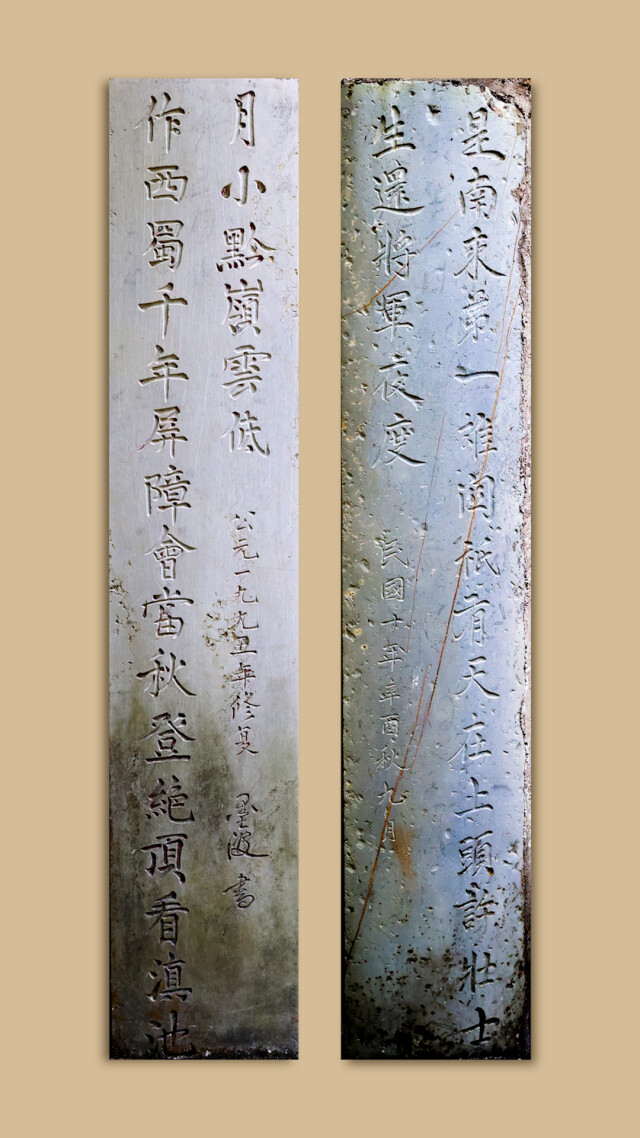 是南來第一雄関祇有天在上頭許壯士
生還將軍夜度
民國十年辛酉秋九月
作西蜀千年屏障會當秋登絕頂看滇池
月小黔嶺雲低
公元一九九五年修复 墨波書